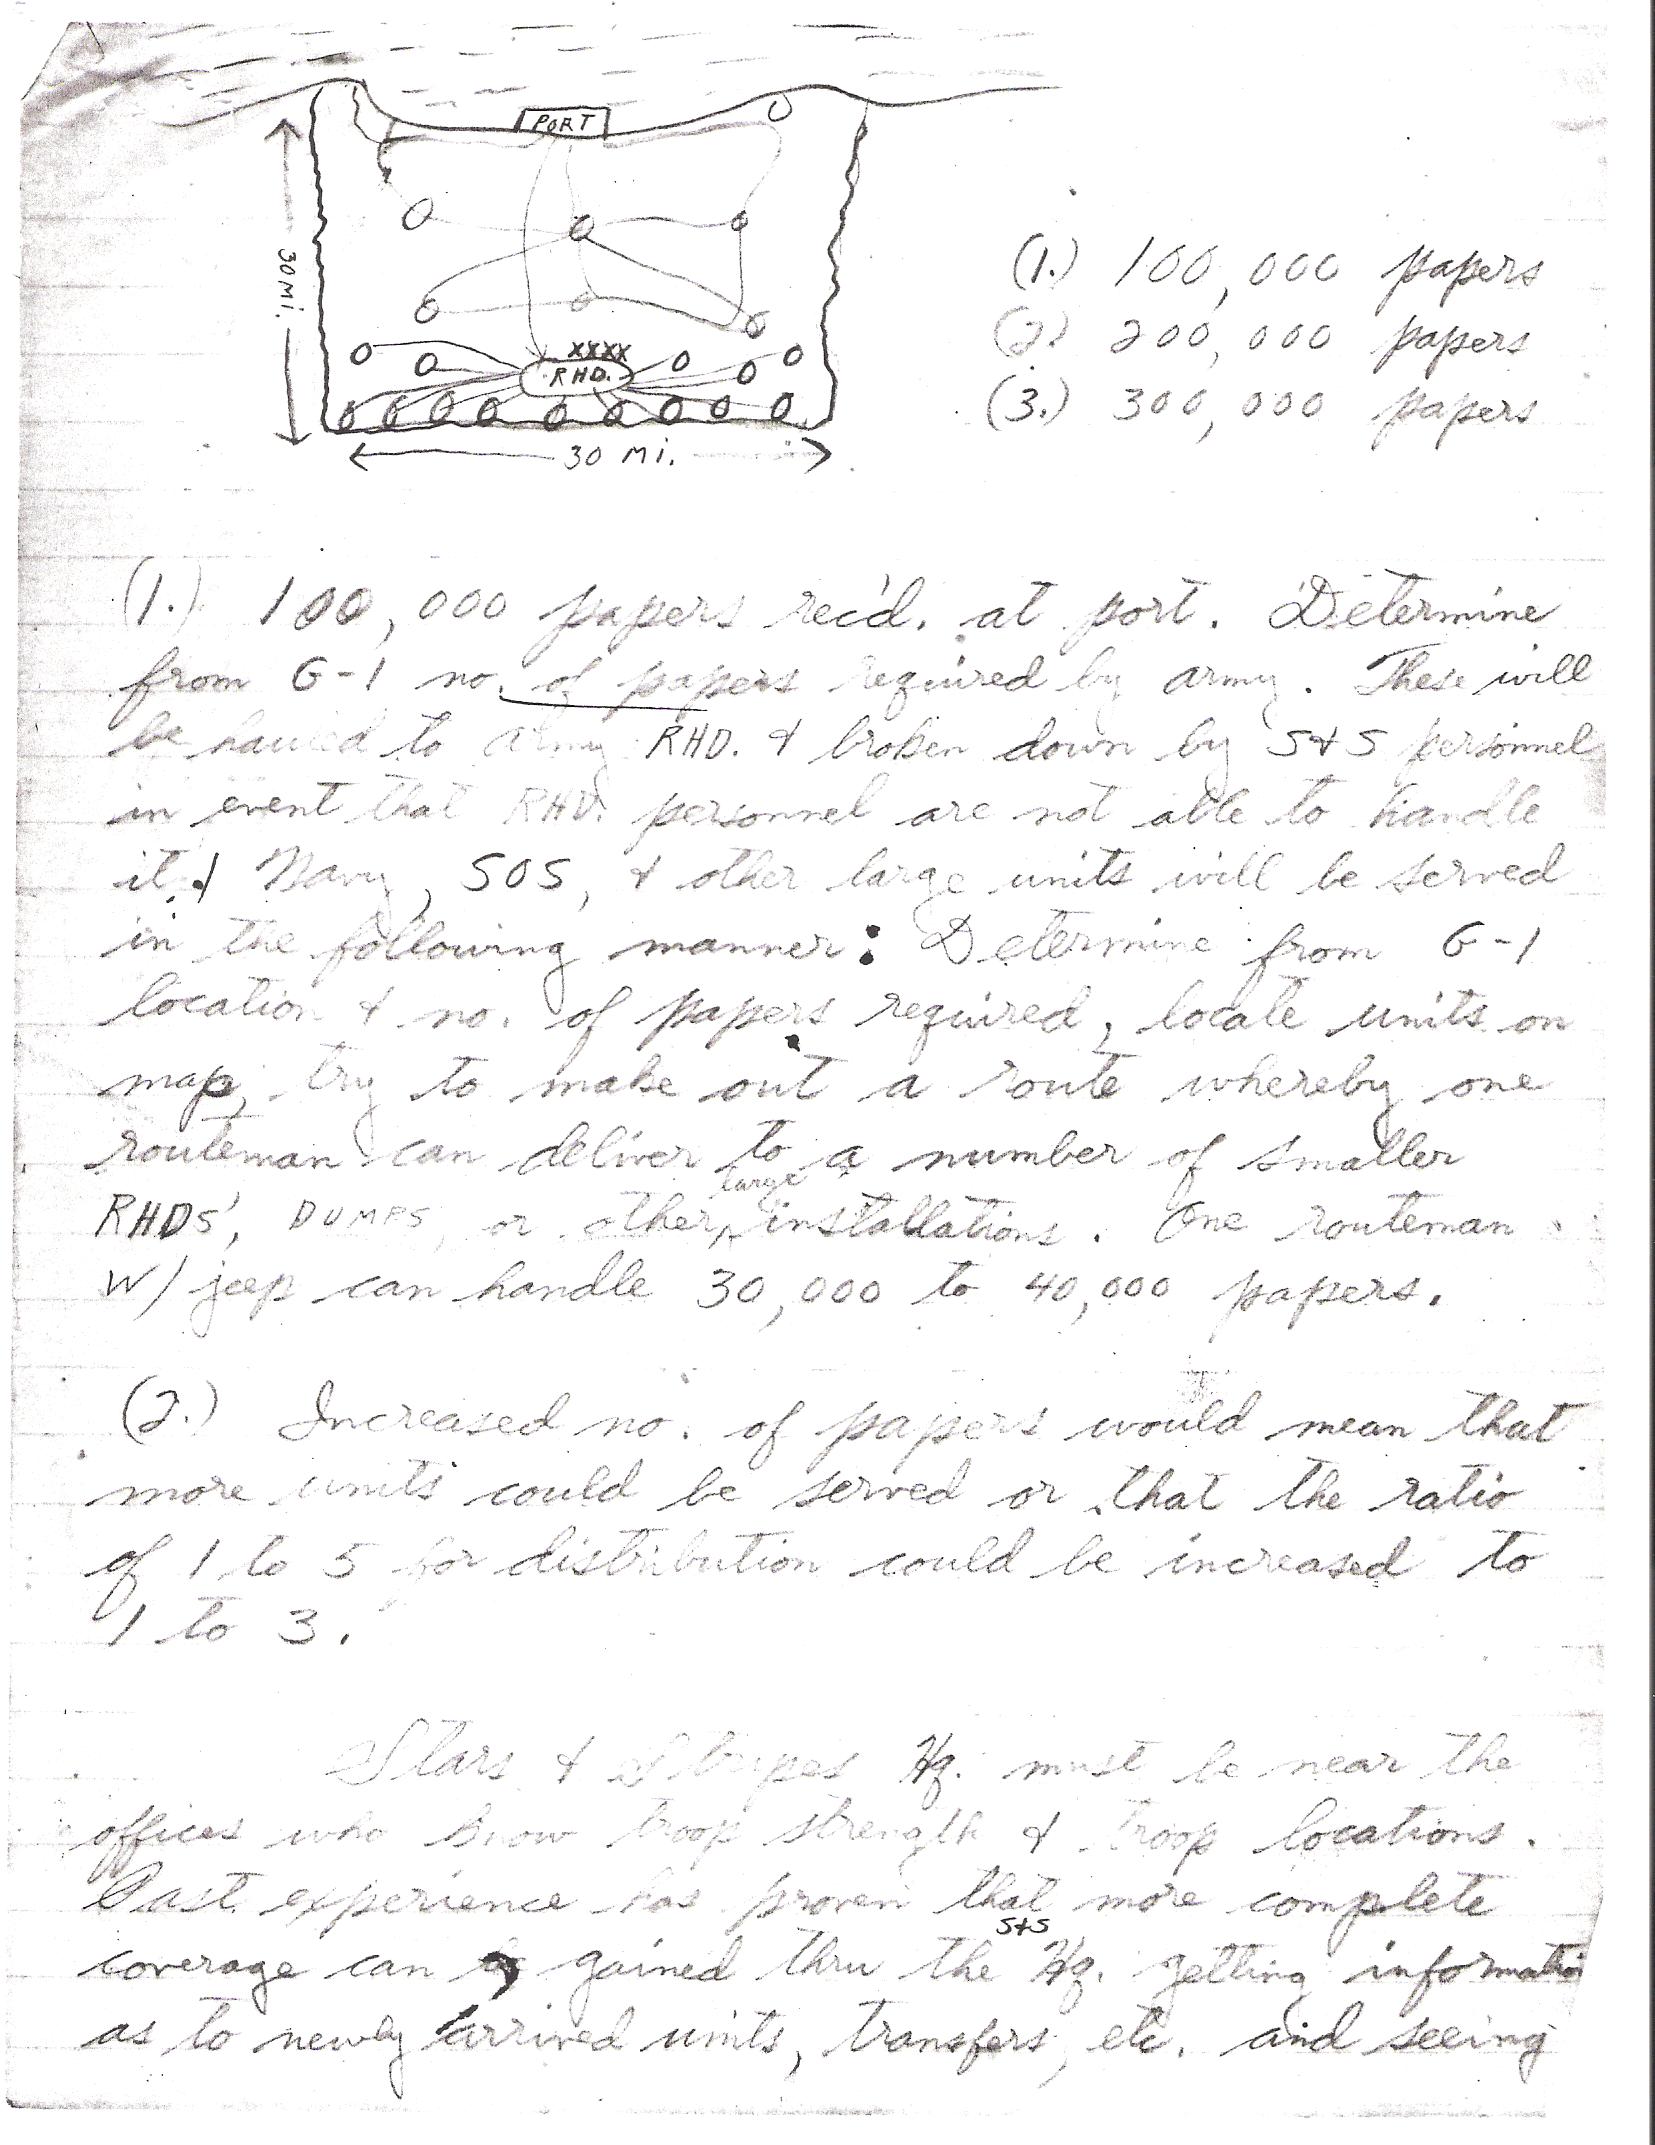 PORT
30 MI.
XXXX
RHD.
30 MI.
(1.) 100,000 papers
(2) 200,000 papers
(3.) 300,000 papers
(1.) 100,000 papers rec'd. at port. Determine
from G-1 no. of papers required by army. These will
be hauled to army RHD. & broken down by S&S personnel
in event that RHD. personnel are not able to handle
it. Navy, SOS, & other large units will be served
in the following manner: Determine from G-1
location & no. of papers required, locate units on
map, try to make out a route whereby one
routeman can deliver to a number of smaller
large
RHDS', DUMPS, or other installations. One routeman
W/ jeep can handle 30,000 to 40,000 papers.
(2.) Increased no. of papers would mean that
more units could be served or that the ratio
of 1 to 5 for distribution could be increased to
1 to 3.
Stars & Stripes Hq. must be near the
offices who know troop strength & troop locations.
Past experience has proven that more complete
S&S
coverage can be gained thru the Hq. getting informatio
as to newly arrived units, transfers, etc. and seeing